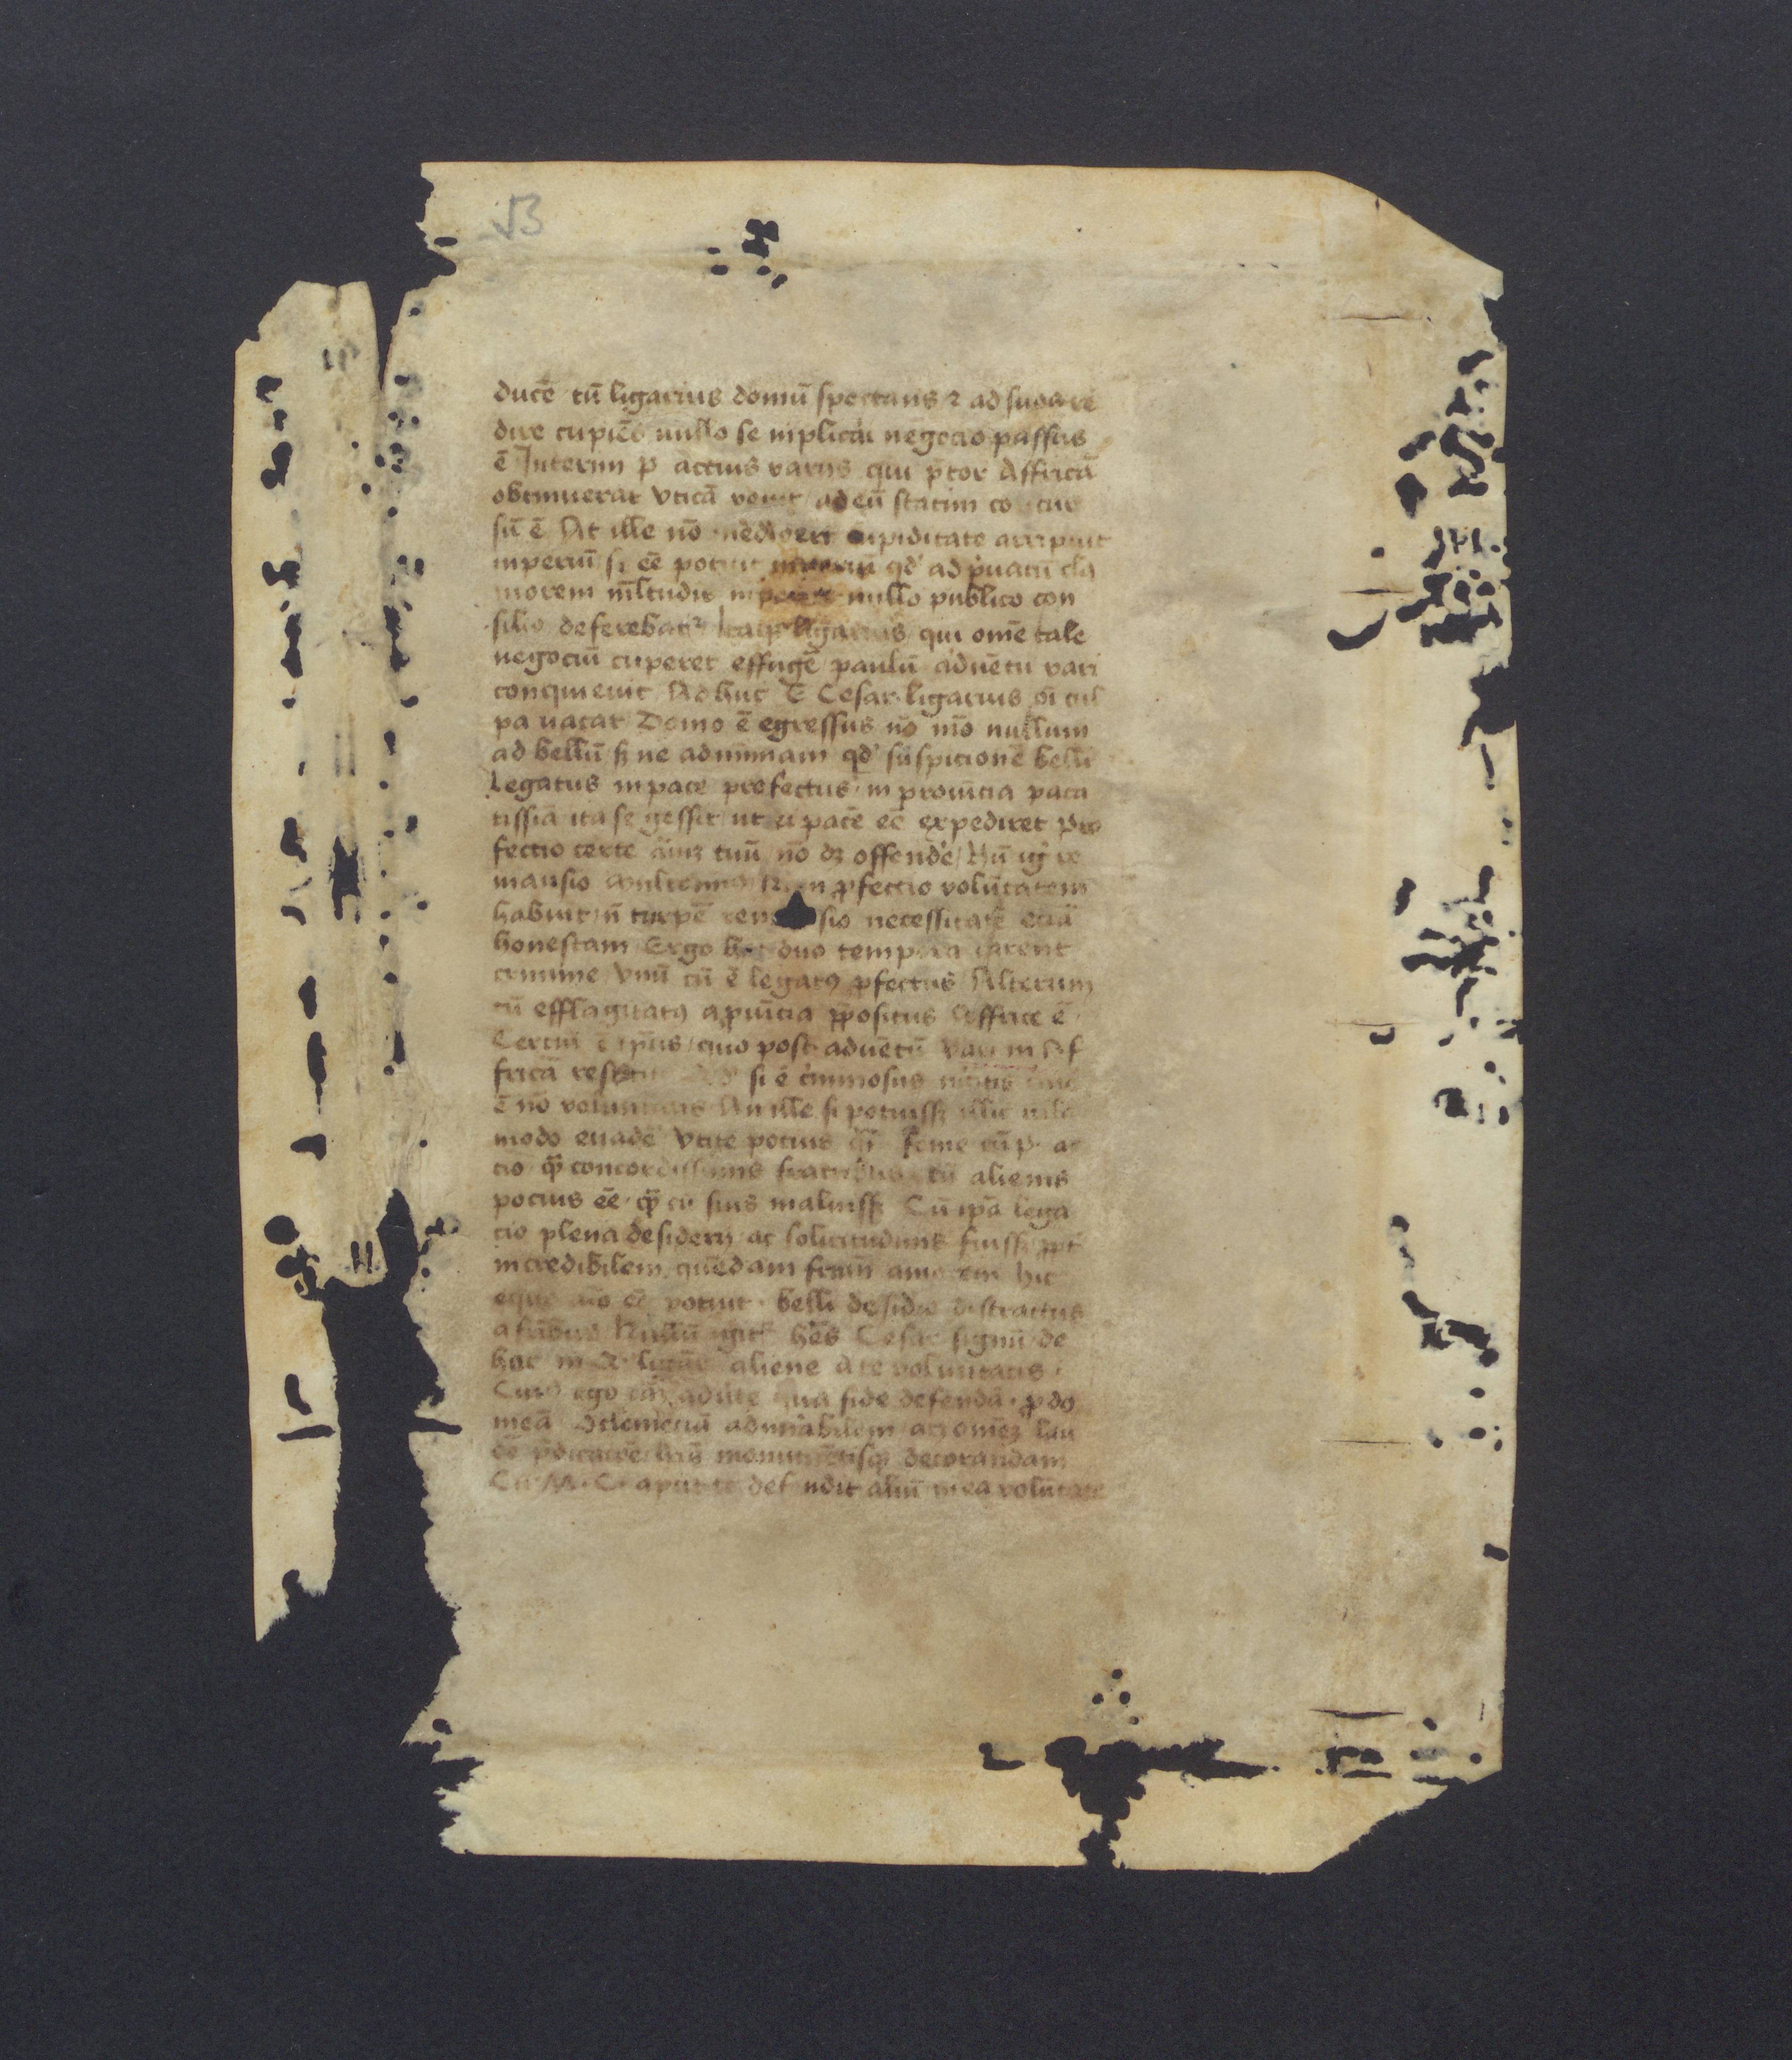 √3
ducē tū ligarius domū spectans ⁊ ad suos re
dire cupiēs nullo se inplicari negocio passus
ē Interim p actius varus qui p̄tor Affricā
obtinuerat vticā venit ad eū statim co cur
sū ē At ille nō mediocri cupiditate arripuit
inperiū si eē potuit inperiū qd' ad p̓uatū cla
morem ml̄tudis inperite nullo publico con
silio deferebat᷑ Itaqȝ ligarius qui om̄e tale
negociū cuperet effugē paulū aduētu vari
conquieuit Adhuc C Cesar ligarius oī cul
pa uacat Domo ē egressus nō mō nullum
ad bellū sȝ ne ad minimam qd' suspicionē belli
Legatus in pace profectus in prouīcia paca
tissīa ita se gessit ut ei pacē eē expediret pro
fectio certe aīuȝ tuū nō dȝ offendē Nū igr̄ re
mansio multo min Nam ꝓfectio volūtatem
habuit nō turpē rem sio necessitatē eciā
honestam Ergo hec duo tempora carent
crimine vnū cū ē legatꝰ ꝓfectus Alterum
cū efflagitatꝰ a ꝓuīcia p̄positus Affrice ē
Terciū ē tp̄us quo post aduētū vari in Af
fricā restitit qd' si ē cīminosus
ē nō voluntatis An ille si potuissȝ illīc ullo
modo euadē vtice potius qm̄ Rome cū p ac
tio qm̄ concordissimis fratribus cū alienis
potius eē qm̄ cū suis maluissȝ Cū ip̄a lega
cio plena desiderii ac solicitudinis fuissȝ ꝓpt
incredibilem quēdam fratrū amorem hic
equo aīo eē potuit belli desidio distractus
a fribus Nullū igit᷑ hēs Cesar signū de
hac in Q ligario aliene a te volūtatis
Cuiꝰ ego cāȝ adūte qua fide defendā ꝓdo
meā O clemēciā admirabilem atqȝ om̄eȝ lau
de p̄dicatōe lr̄is monumētisqȝ decorandam
Cū M C aput te defendit aliū in ea volūtate